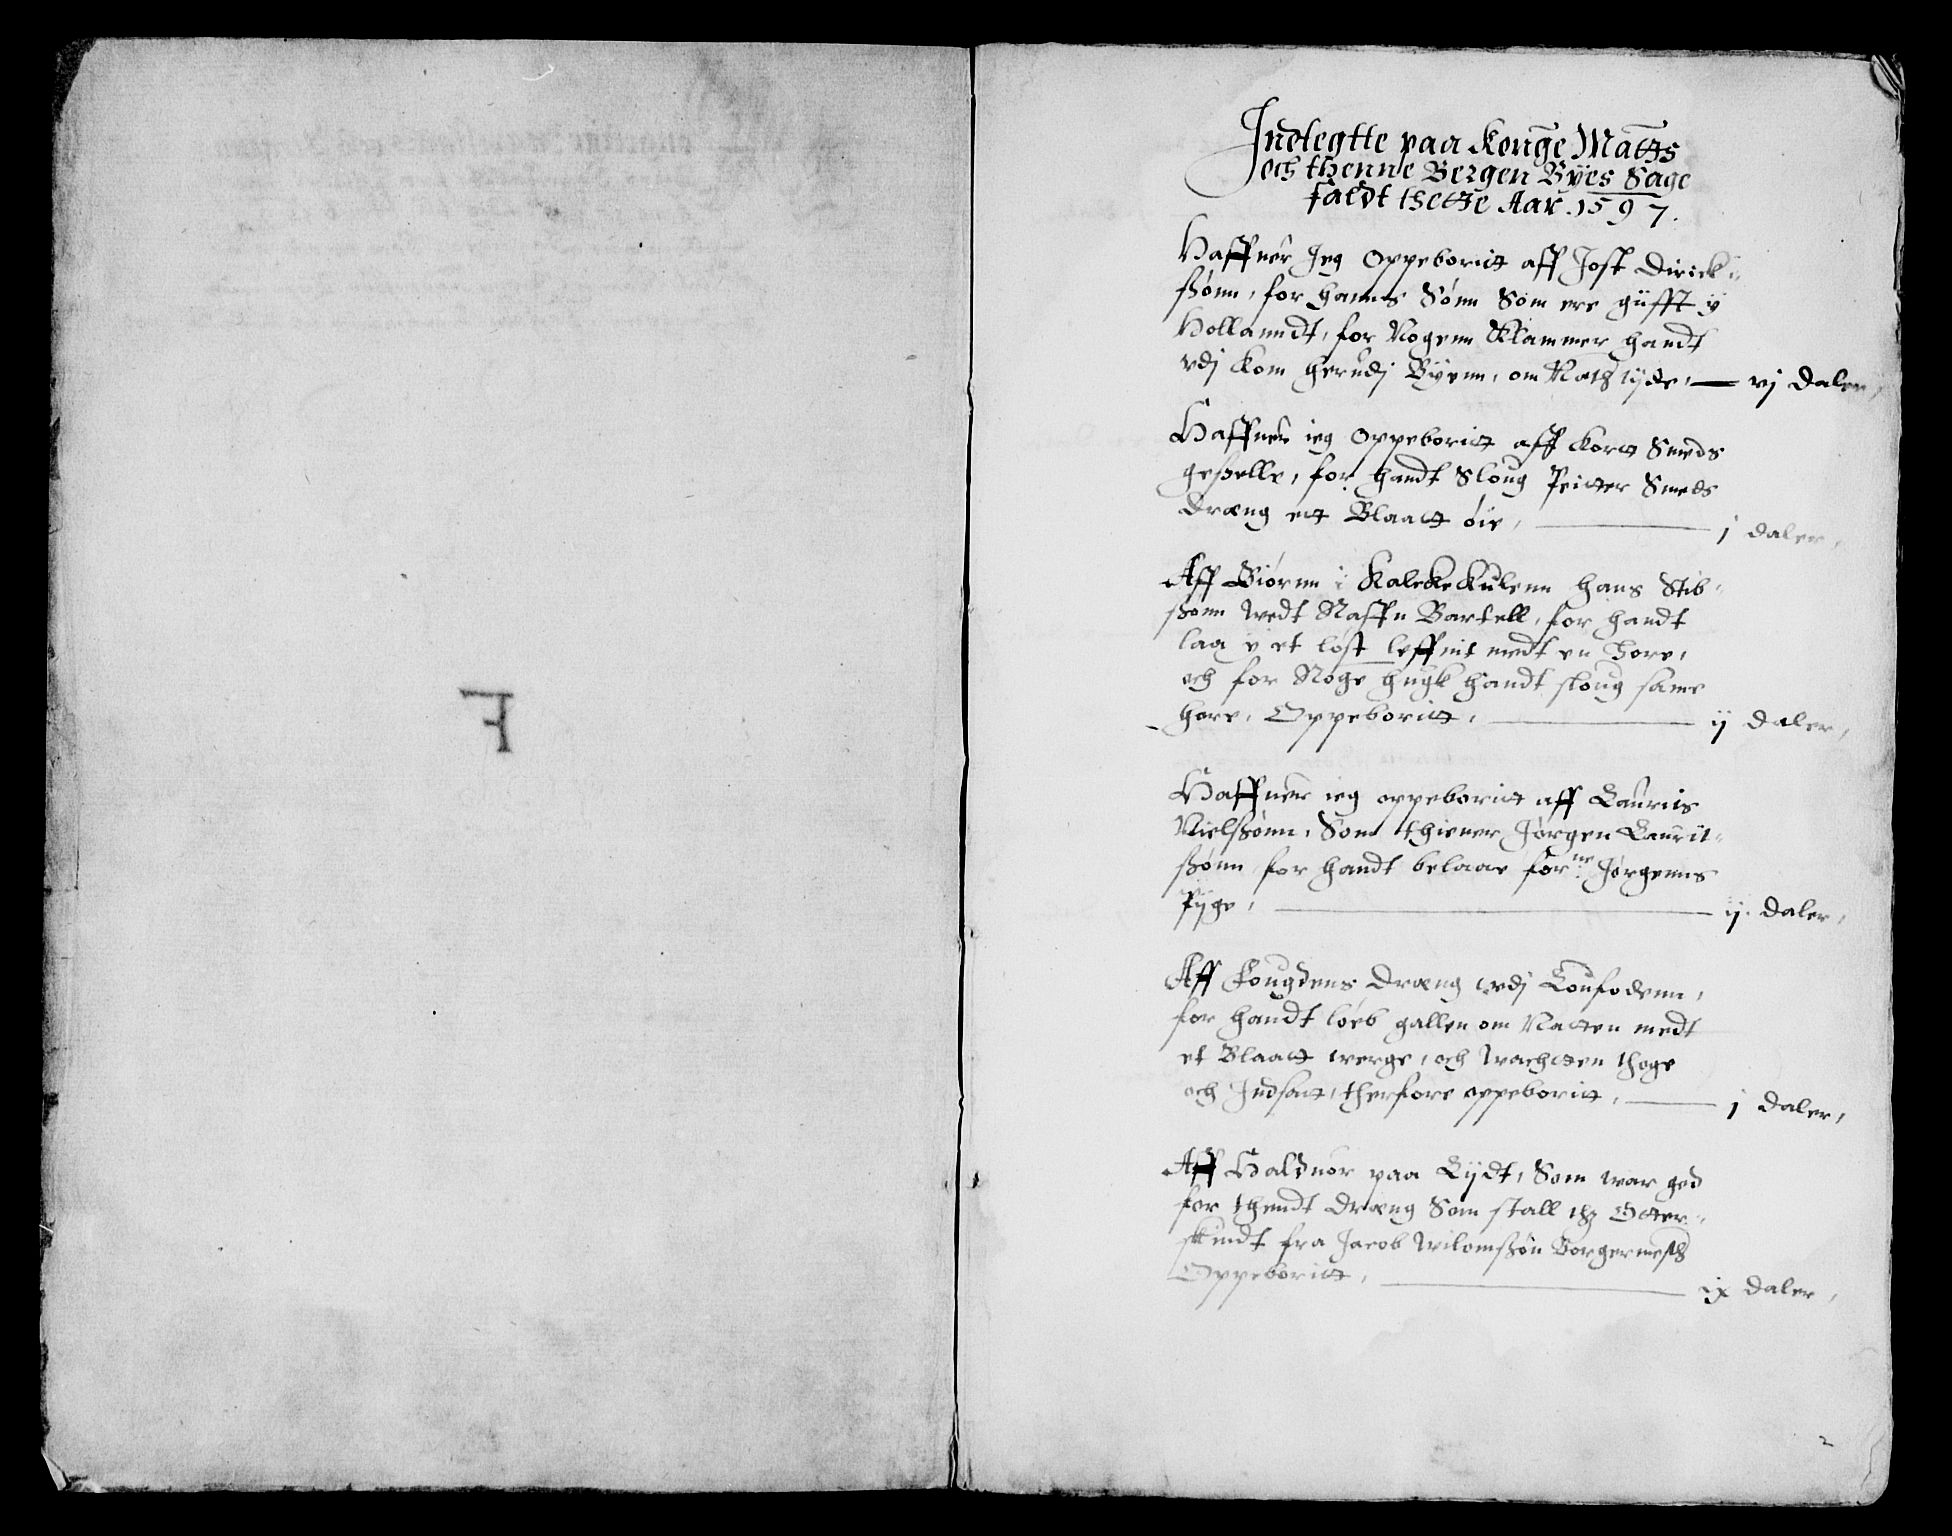 F
Indtegtte paa Konge Matts
och thenne Bergen Byes Sage
faldt thette Aar .1597.
Haffuer Jeg Oppeboritt aff Jost Dirick-
ßønn, for hanns Sønn Som ere giifft y
Hollanndt, for Nogenn Klammer handt
vdj kom herudj Byenn, om Nathtijde, — vj daler,
Haffuer ieg Oppeboritt aff Kortt Smeds
geßelle, for handt Sloug Peitter Smeds
Dræng ett Blaatt øie, — j daler,
Aff Biørnn i Kalckekulenn hans Stib-
ßønn wedt Naffn Bartell, for handt
laa y et løst leffnit medt en Hore,
och for Noge hugk handt sloug same
hore, Oppeboritt, — ij daler,
Haffuer ieg oppeboritt aff Lauriis
Nielßønn, Som thiener Jørgen Laurit-
ßønn for handt belaae for:ne Jørgenns
Pijge, — ij daler,
Aff Fougdens Dræng vdj Loufodenn,
for handt løeb gallen om Natten medt
et Blaatt werge, och Wachtten thoge
och Indsatt, therfore oppeboritt, — j daler,
Aff Halduor paa Lijdt, Som war god
for thendt Dræng Som stall thz Otter-
skindt fra Jacob Wilomßøn Borgermesth
Oppeboritt, — ix daler,
2